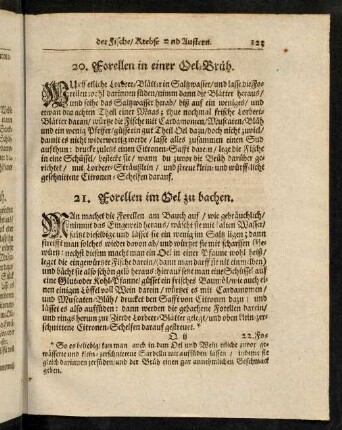 der Fische/ Krebse und Austern. 123
20. Forellen in einer Oel-Brüh.
etliche Lorbeer-Blätter in Saltzwasser/ und lasse die Fo-
rellen wohl darinnen süden/nimm dann die Blätter heraus/
und seihe das Saltzwasser herab/ biß auf ein weniges/ und
etwan den achten Theil einer Maas; thue nochmal frische Lorbeer-
Blätter daran/ würtze die Fische mit Cardamomen/Muscaten-Blüh
und ein wenig Pfeffer/ giesse ein gut Theil Oel dazu/doch nicht zu viel/
damit es nicht
aufthun: drucke zuletzt einen Citronen-Safft daran/ lege die Fische
in eine Schüssel/ bestecke sie/ wann du zuvor die Brüh darüber ge-
richtet/ mit Lorbeer-Sträußlein/ und streue klein- und würff-licht
geschnittene Citronen-Schelfen darauf.
21. Forellen im Oel zu bachen.
MAn machet die Forellen am Bauch auf/ wie gebräuchlich/
nimmt das Eingeweid heraus/ wäscht sie mit
saltzt dieselbige und lässet sie ein wenig im Saltz ligen; dann
streifft man solches wieder davon ab/ und würtzet sie mit scharffen Ge-
würtz: nechst diesem machet man ein Oel in einer Pfanne wohl heiß/
leget die eingewürtzte Fische darein/
und bächt sie also schön gelb heraus: hierauf setzt man eine Schüssel auf
eine Glut oder Kohl-Pfanne/ giesset ein frisches Baum-Oel wie auch
einen Löffel voll Wein darein/ würtzet es mit Cardamomen-
und Muscaten-Blüh/ drucket den Safft von Citronen dazu; und
lässet es also aufsüden: dann werden die gebachene Forellen darein/
und rings herum zur Zierde Lorbeer-Blätter gelegt/ und oben klein-zer-
schnittene Citronen-Schelfen darauf gestreuet.*
Q ij 22. Fo-
* So es beliebig/ kan man auch in dem Oel und Wein etliche zuvor ge-
wässerte und klein-zerschnittene Sardelln mit aufsüden lassen/ indeme sie
gleich darinnen zersüden/ und der Brüh einen gar annehmlichen Geschmack
geben.